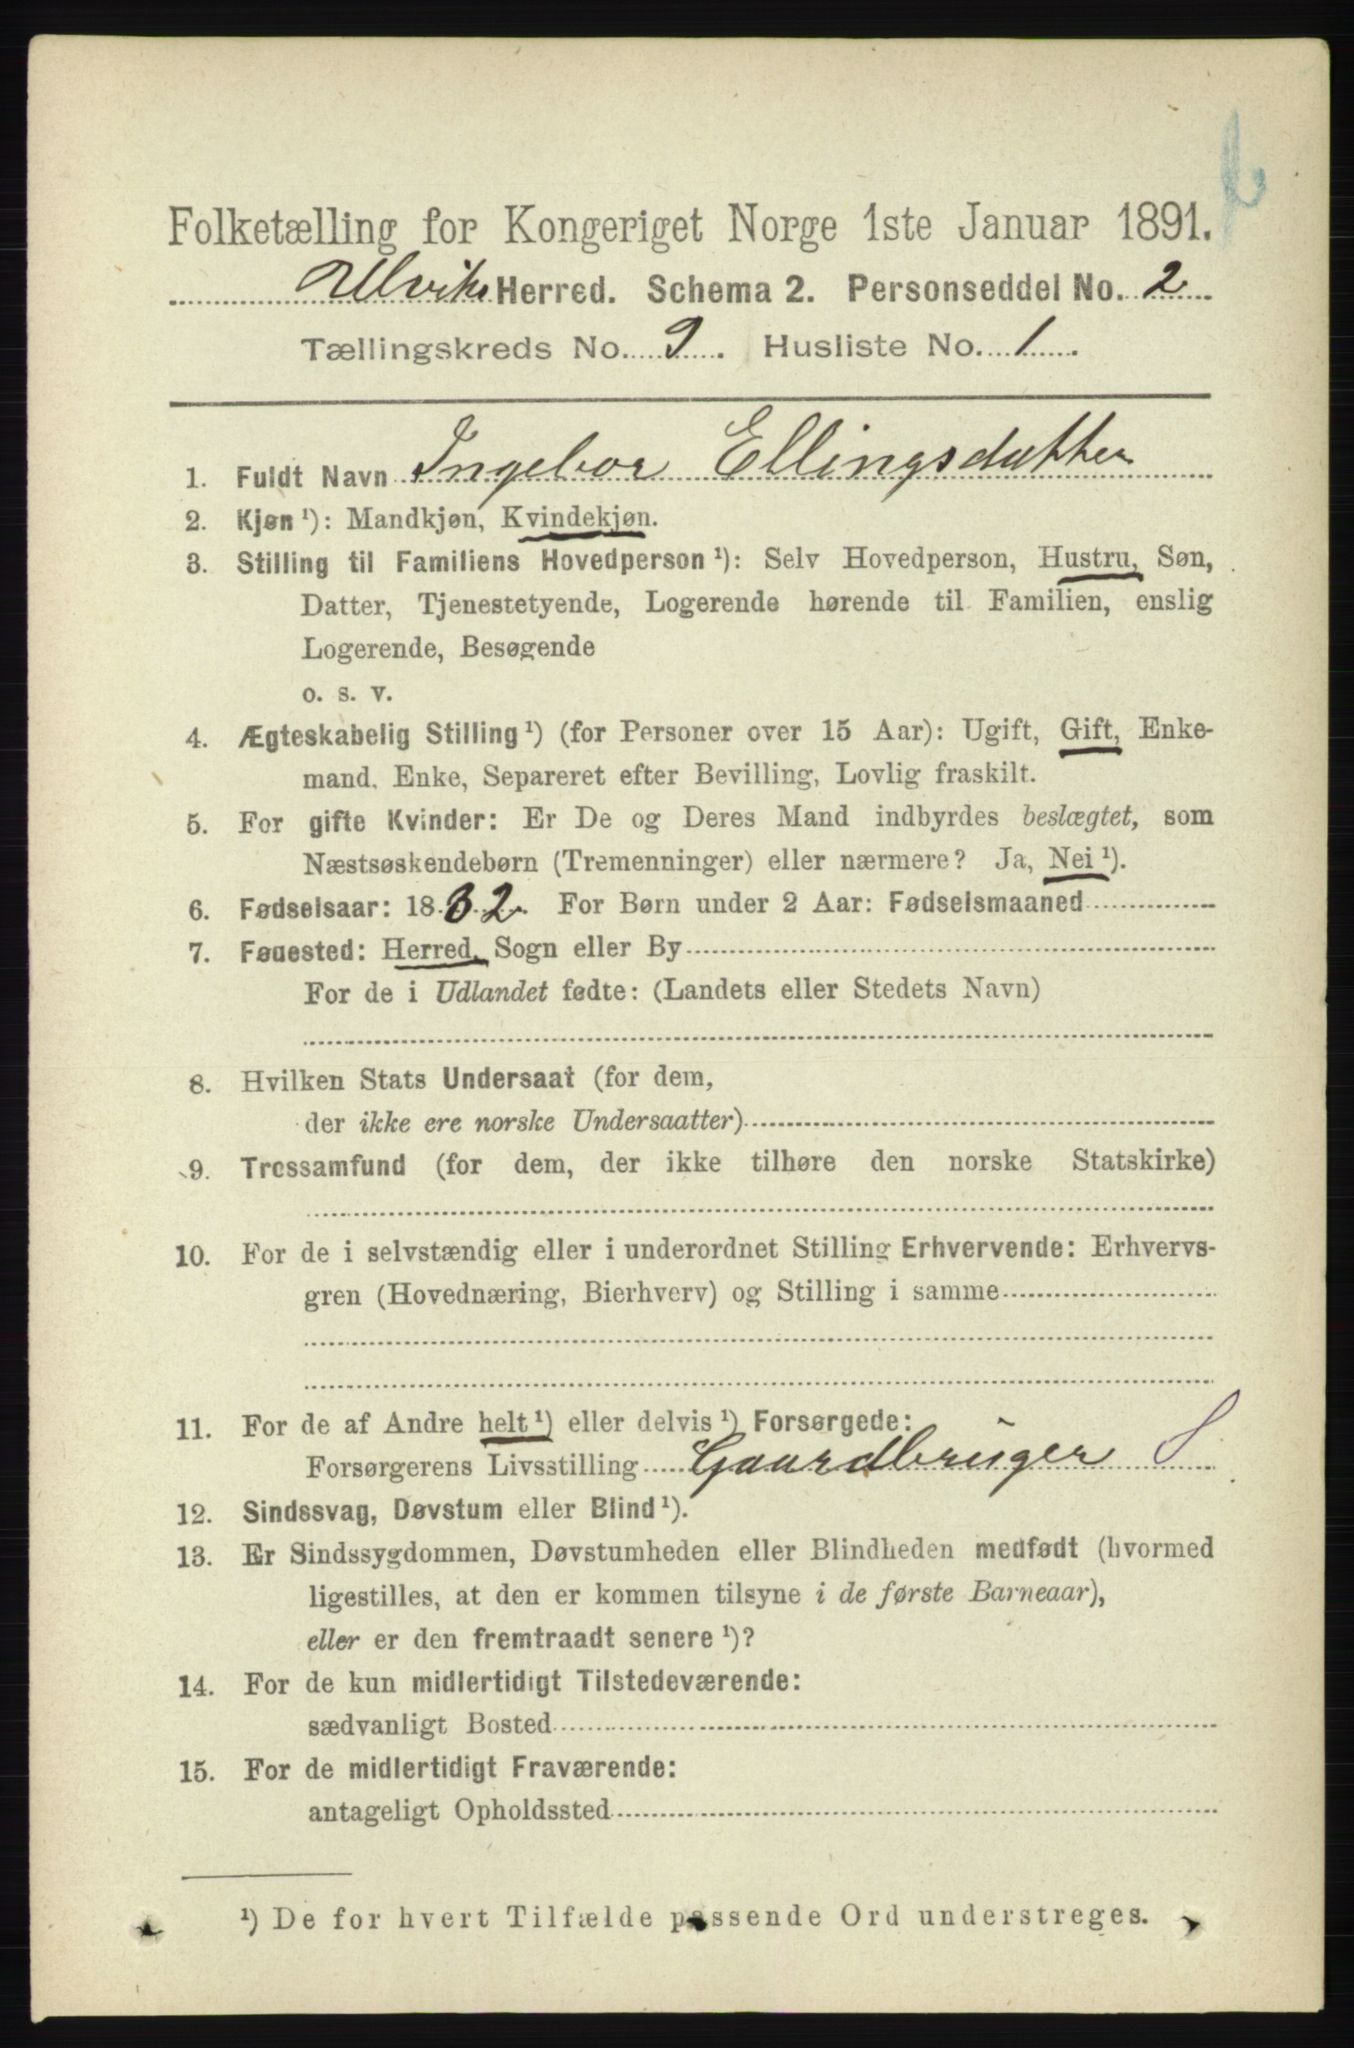 Folketælling for Kongeriget Norge 1ste Januar 1891.
Ulvik Herred. Schema 2. Personseddel No. 2
Tællingskreds No. 9. Husliste No. 1.
1. Fuldt Navn Ingebor Ellingsdatter
2. Kjøn ¹): Mandkjøn, Kvindekjøn.
3. Stilling til Familiens Hovedperson ¹): Selv Hovedperson, Hustru, Søn,
Datter, Tjenestetyende, Logerende hørende til Familien, enslig
Logerende, Besøgende
o. s. v.
4. Ægteskabelig Stilling ¹) (for Personer over 15 Aar): Ugift, Gift, Enke-
mand, Enke, Separeret efter Bevilling, Lovlig fraskilt.
5. For gifte Kvinder: Er De og Deres Mand indbyrdes beslægtet, som
Næstsøskendebørn (Tremenninger) eller nærmere? Ja, Nei ¹).
6. Fødselsaar: 1832. For Børn under 2 Aar: Fødselsmaaned
7. Føuested: Herred, Sogn eller By
For de i Udlandet fødte: (Landets eller Stedets Navn)
8. Hvilken Stats Undersaat (for dem,
der ikke ere norske Undersaatter)
9. Trossamfund (for dem, der ikke tilhøre den norske Statskirke)
10. For de i selvstændig eller i underordnet Stilling Erhvervende: Erhvervs-
gren (Hovednæring, Bierhverv) og Stilling i samme
11. For de af Andre helt ¹) eller delvis ¹) Forsørgede:
Forsørgerens Livsstilling Gaardbruger S
12. Sindssvag, Døvstum eller Blind ¹).
13. Er Sindssygdommen, Døvstumheden eller Blindheden medfødt (hvormed
ligestilles, at den er kommen tilsyne i de første Barneaar),
eller er den fremtraadt senere ¹)?
14. For de kun midlertidigt Tilstedeværende:
sædvanligt Bosted
15. For de midlertidigt Fraværende:
antageligt Opholdssted
¹) De for hvert Tilfælde passende Ord understreges.